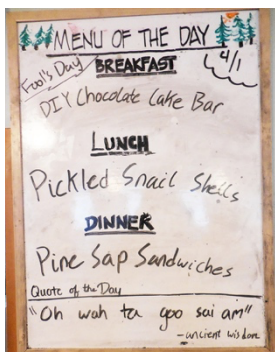 MENU OF THE DAY
4/1
Fool's Day
BREAKFAST
DIY Chocolate Cake Bar
LUNCH
Pickled Snail Shells
DINNER
Pine Sap Sandwiches
Quote of the Day
"Oh wah ta goo sai am"
-ancient wisdom